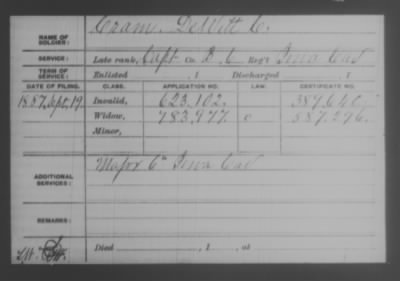 NAME OF SOLDIER: Cram, DeWitt C.
SERVICE: Late rank, Capt Co. B, 6 Reg't Iowa Cav
TERM OF SERVICE: Enlisted , 1 Discharged , 1
DATE OF FILING. CLASS. APPLICATION NO. LAW. CERTIFICATE NO.
1887, Sept, 19. Invalid, 623,102. 389,640
Widow, 783,977. 587,296.
Minor,
ADDITIONAL SERVICES: Major 6" Iowa Cav
REMARKS:
Died , 1 , at